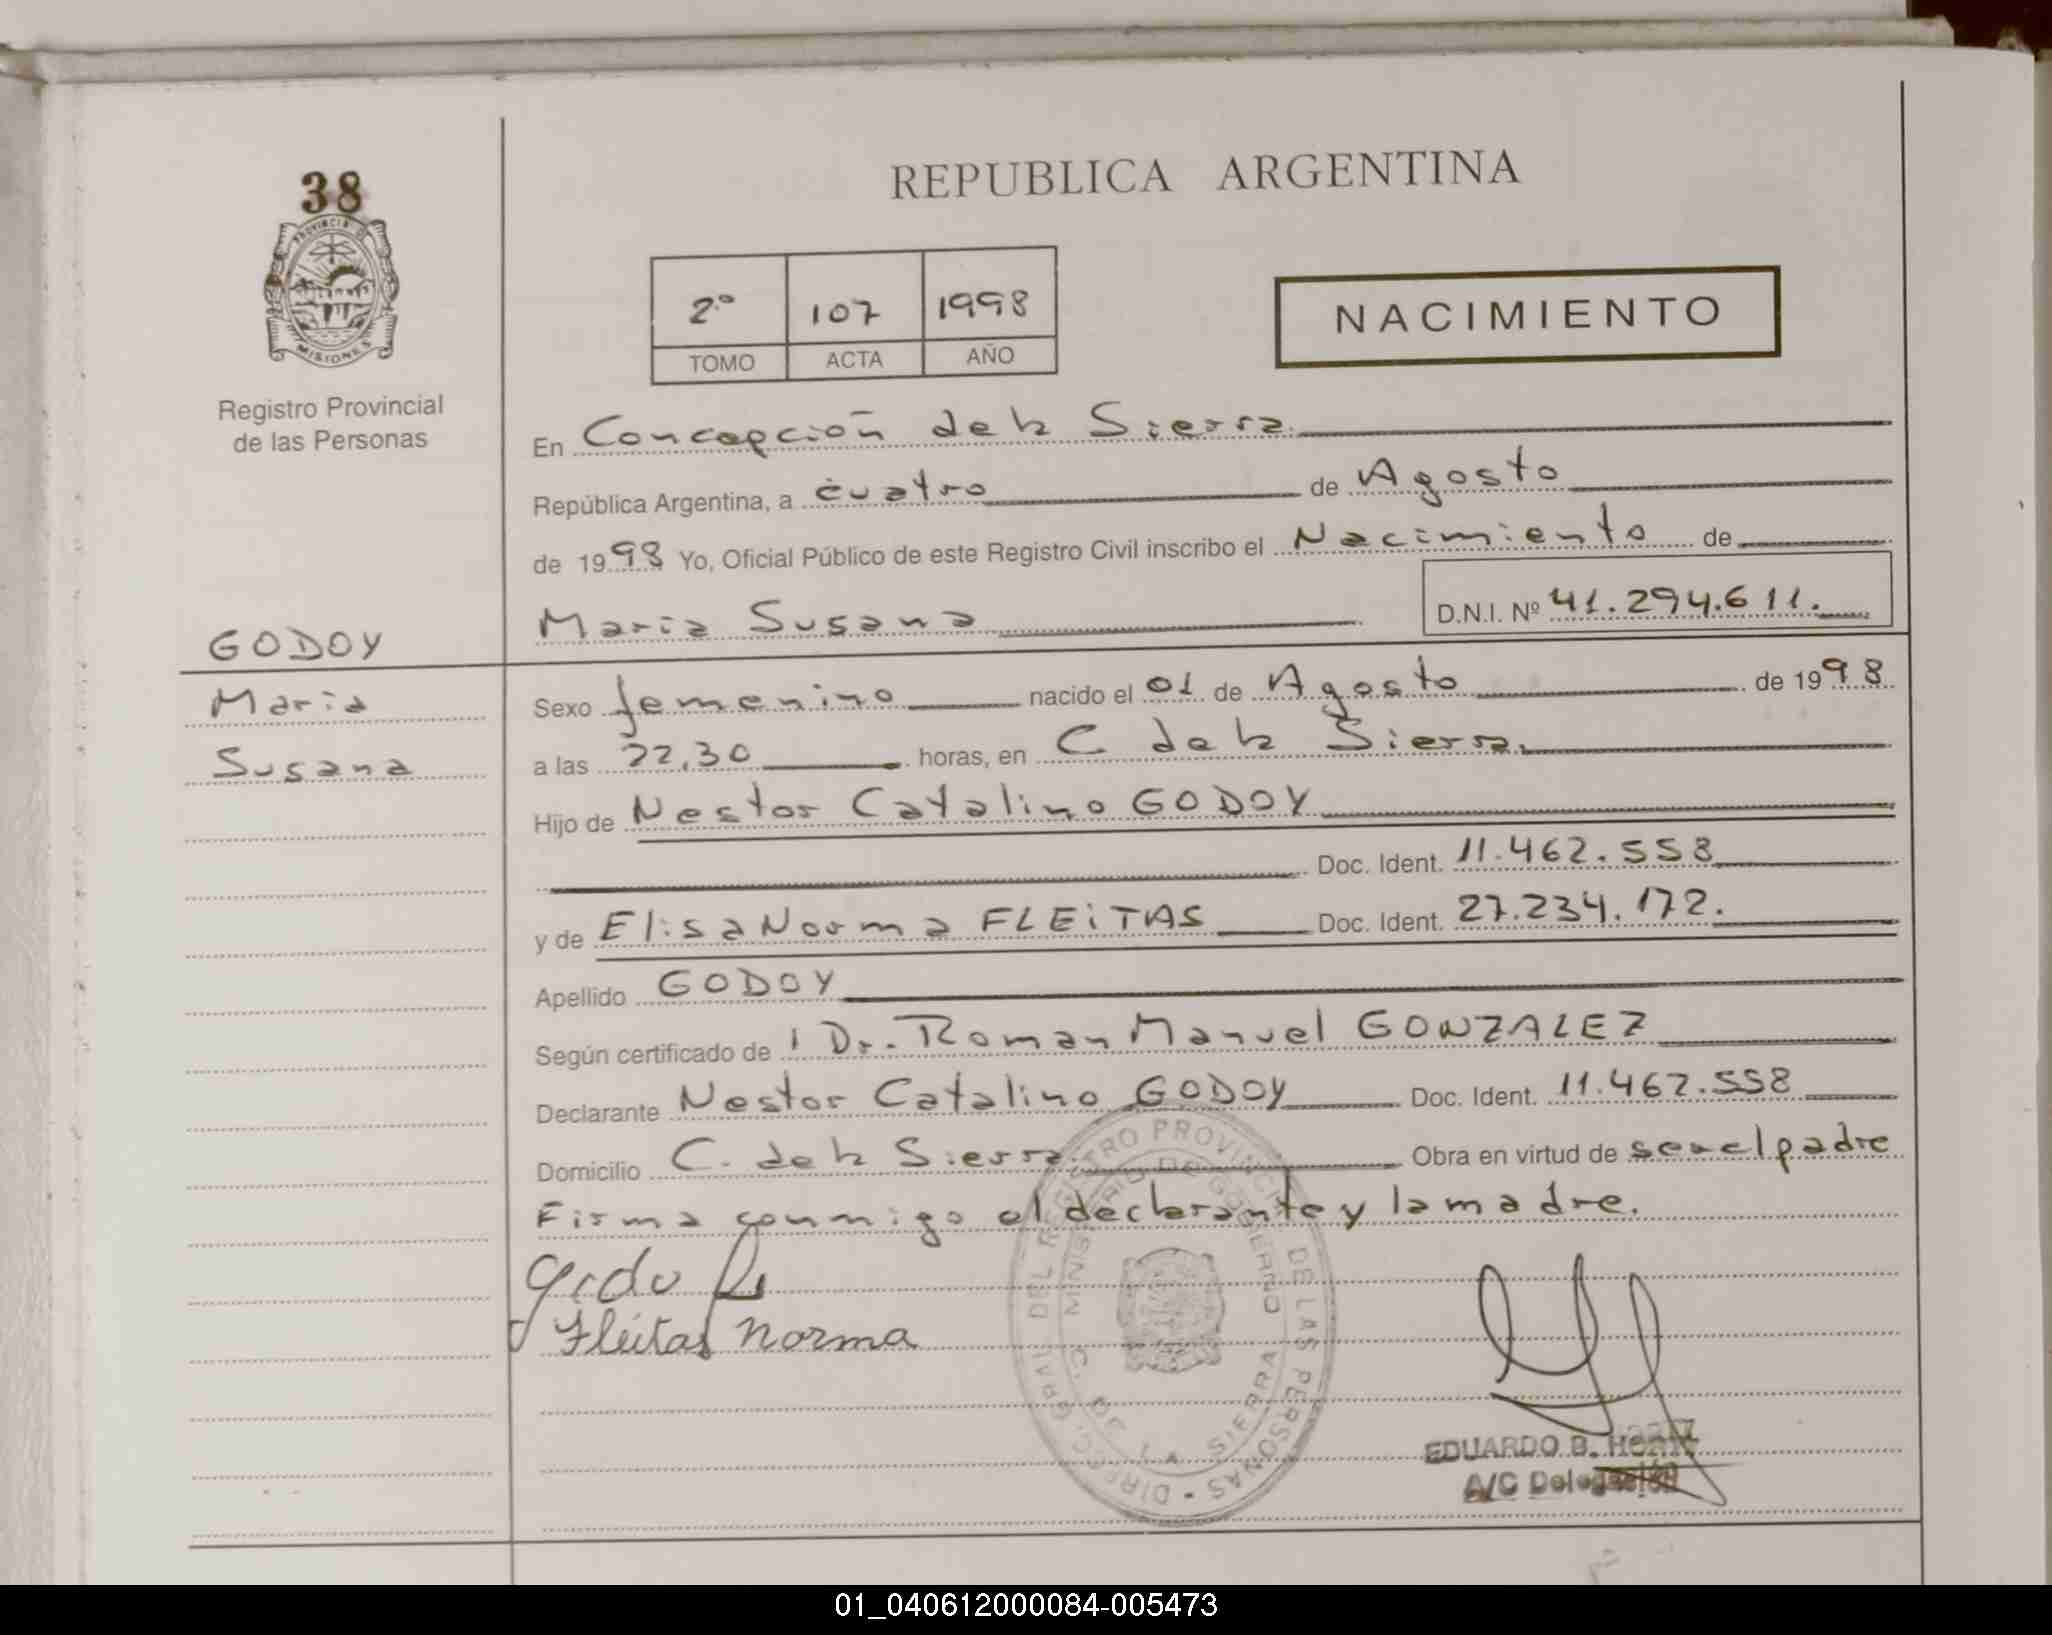 38
PROVINCIA DE
MISIONES
Registro Provincial
de las Personas
REPUBLICA ARGENTINA
2º 107 1998
TOMO ACTA AÑO
NACIMIENTO
En Concepción de la Sierra
República Argentina, a cuatro de Agosto
de 1998 Yo, Oficial Público de este Registro Civil inscribo el Nacimiento de
Maria Susana D.N.I. Nº 41.294.611.
GODOY
Maria
Susana
Sexo femenino nacido el 01 de Agosto de 1998
a las 22,30 horas, en C de la Sierra.
Hijo de Nestor Catalino GODOY
Doc. Ident. 11.462.558
y de Elisa Norma FLEiTAS Doc. Ident. 27.234.172.
Apellido GODOY
Según certificado de Dr. Roman Manuel GONZALEZ
Declarante Nestor Catalino GODOY Doc. Ident. 11.462.558
Domicilio C. de la Sierra. Obra en virtud de ser el padre
Firma conmigo el declarante y la madre.
Fleitas Norma
DIREC. GRAL. DEL REGISTRO PROVINCIAL DE LAS PERSONAS
MINISTERIO DE GOBIERNO
C. DE LA SIERRA
EDUARDO B.
A/C Delegación
01_040612000084-005473